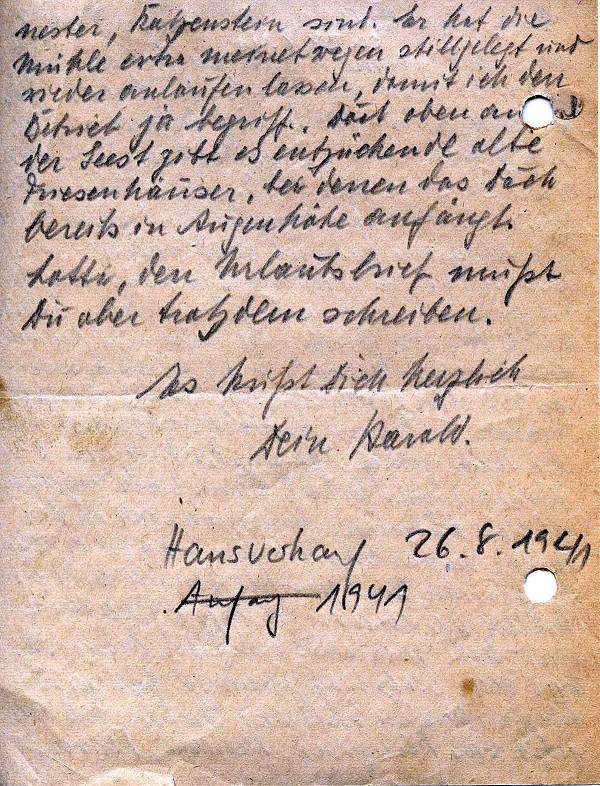 nester, Katzenstein sind. Er hat die
Mühle extra meinetwegen stillgelegt und
wieder anlaufen lassen, damit ich den
Betrieb ja begriff. Dort oben an
der Seest gibt es entzückende alte
Friesenhäuser, bei denen das Dach
bereits in Augenhöhe anfängt.
Lotti, den Urlaubsbrief mußt
Du aber trotzdem schreiben.
Es küßt Dich herzlich
Dein Harald.
26.8.1941
Anfang 1941